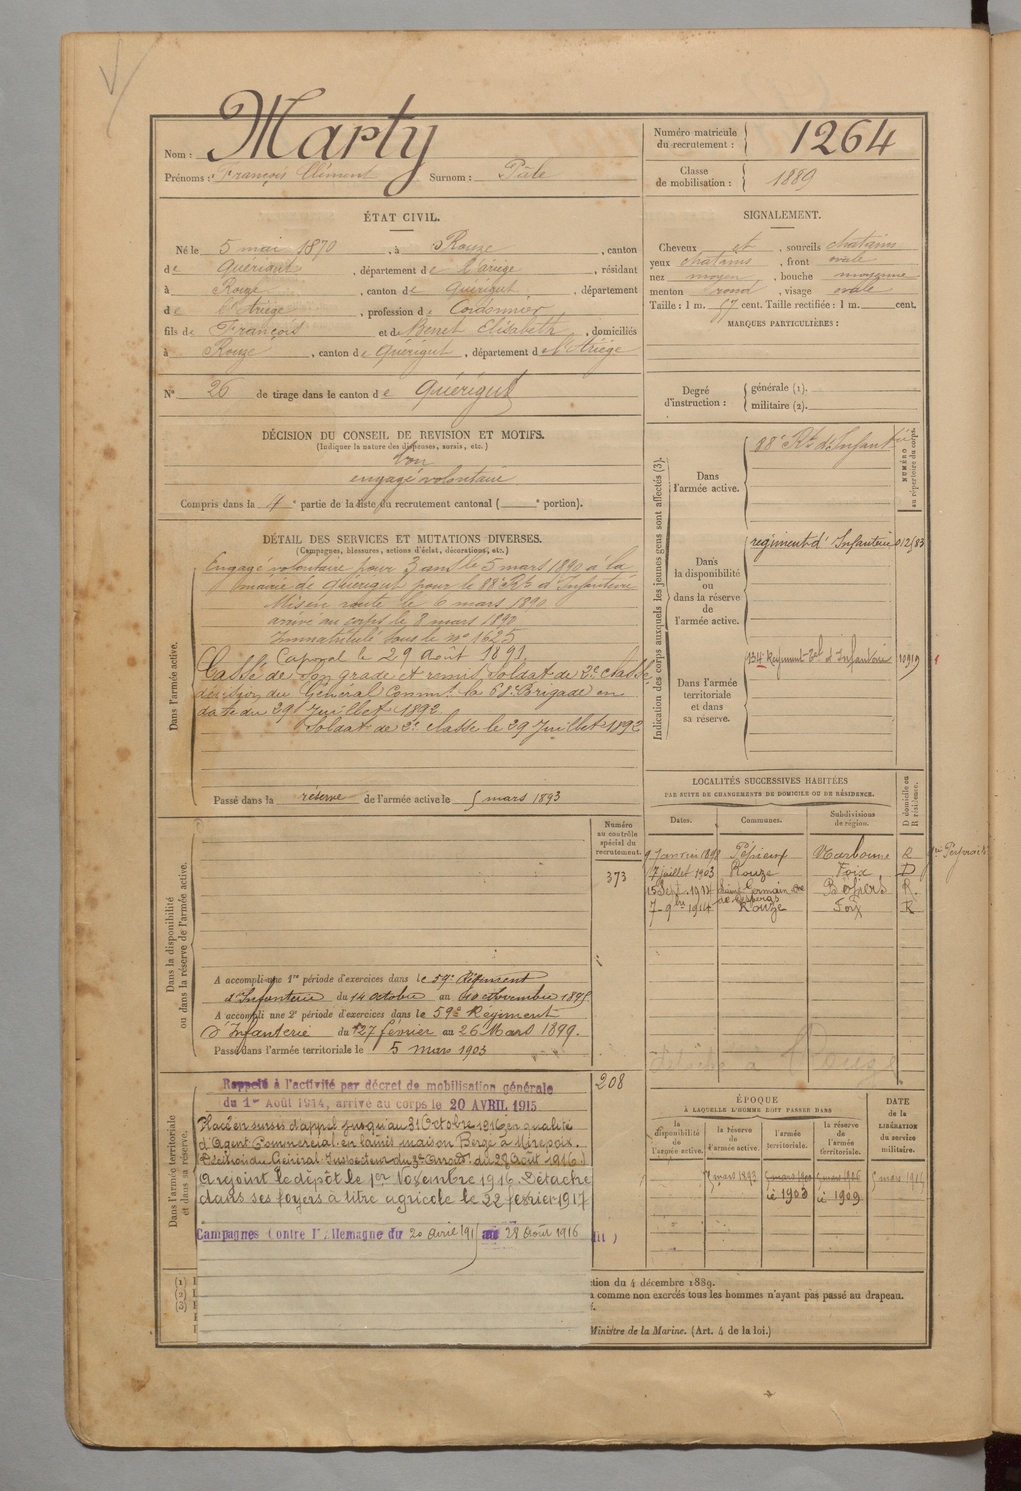 Nom : Marty
Prénoms : François Clément Surnom : Pile
Numéro matricule du recrutement : 1264
Classe de mobilisation : 1889
ÉTAT CIVIL.
Né le 5 mai 1870, à Rouze, canton
de Quérigut, département de l'Ariège, résidant
à Rouze, canton de Quérigut, département
de l'Ariège, profession de Cordonnier
fils de François et de Benet Elisabeth, domiciliés
à Rouze, canton de Quérigut, département de l'Ariège
N° 26 de tirage dans le canton de Quérigut
SIGNALEMENT.
Cheveux et, sourcils chatains
yeux chatains, front ovale
nez moyen, bouche moyenne
menton rond, visage ovale
Taille : 1 m. 57 cent. Taille rectifiée : 1 m. cent.
MARQUES PARTICULIÈRES :
Degré d'instruction : générale (1).
militaire (2).
DÉCISION DU CONSEIL DE REVISION ET MOTIFS.
(Indiquer la nature des dispenses, sursis, etc.)
Bon
engagé volontaire
Compris dans la 4e partie de la liste du recrutement cantonal ( e portion).
DÉTAIL DES SERVICES ET MUTATIONS DIVERSES.
(Campagnes, blessures, actions d'éclat, décorations, etc.)
Dans l'armée active.
Engagé volontaire pour 3 ans le 5 mars 1890 à la
mairie de Quérigut pour le 88e Rt d'Infanterie
Mis en route le 6 mars 1890
arrivé au corps le 8 mars 1890
Immatriculé sous le n° 1625
Caporal le 29 août 1891
Cassé de son grade et remis soldat de 2e classe
décision du Général Commt la 68e Brigade en
date du 29 Juillet 1892
Soldat de 2e classe le 29 Juillet 1892
Passé dans la réserve de l'armée active le 5 mars 1893
Indication des corps auxquels les jeunes gens sont affectés (3).
NUMÉRO au répertoire du corps.
Dans l'armée active.
88e Rt d'Infanterie
Dans la disponibilité ou dans la réserve de l'armée active.
régiment d'Infanterie 012583
Dans l'armée territoriale et dans sa réserve.
134e Régiment Tal d'Infanterie 10919
LOCALITÉS SUCCESSIVES HABITÉES
PAR SUITE DE CHANGEMENTS DE DOMICILE OU DE RÉSIDENCE.
Dates. Communes. Subdivisions de région. D domicile ou R résidence.
9 Janvier 1898 Pépieux Narbonne R
7 juillet 1903 Rouze Foix D
15 Sept. 1914 Saint Germain Béziers R.
7-9bre 1914 Rouze Foix R
Dans la disponibilité ou dans la réserve de l'armée active.
Numéro au contrôle spécial du recrutement.
373
A accompli une 1re période d'exercices dans le 59e Régiment
d'Infanterie du 14 octobre au 10 Novembre 1895
A accompli une 2e période d'exercices dans le 59e Régiment
d'Infanterie du 27 février au 26 Mars 1899.
Passé dans l'armée territoriale le 5 mars 1903
Dans l'armée territoriale et dans sa réserve.
208
Rappelé à l'activité par décret de mobilisation générale
du 1er Août 1914, arrivé au corps le 20 AVRIL 1915
Placé en sursis d'appel jusqu'au 31 Octobre 1916 en qualité
d'Agent Commercial en laines maison Berge à Mirepoix.
(Décision du Général Inspecteur du 3e Arrondt. du 28 Août 1916.)
a rejoint le dépôt le 1er Novembre 1916. Détaché
dans ses foyers à titre agricole le 22 février 1917
Campagnes Contre l'Allemagne du 20 Avril 1915 au 28 Août 1916
ÉPOQUE
À LAQUELLE L'HOMME DOIT PASSER DANS
la disponibilité de l'armée active. la réserve de l'armée active. l'armée territoriale. la réserve de l'armée territoriale.
DATE de la LIBÉRATION du service militaire.
5 mars 1893
le 1903
le 1909
(1)
(2)
(3)
tion du 4 décembre 1889.
comme non exercés tous les hommes n'ayant pas passé au drapeau.
Ministre de la Marine. (Art. 4 de la loi.)